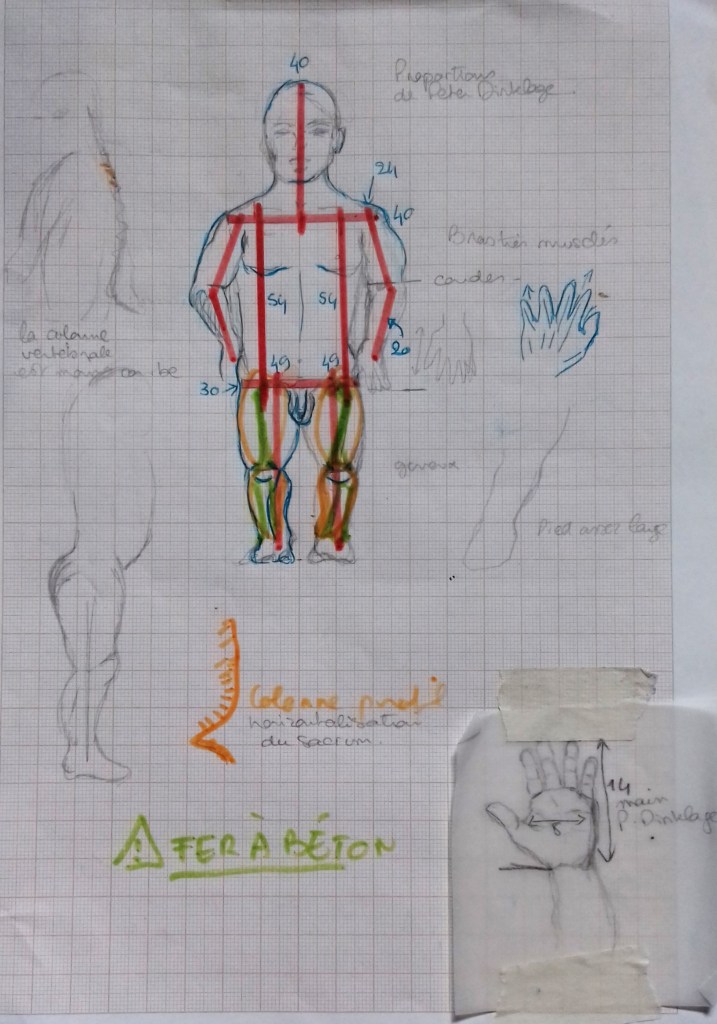 40
Proportions
de Peter Dinklage.
24
40
Bras très musclés
coudes
54 54
20
la colonne
vertébrale
est
49 49
30
genoux
Pied assez large
Colonne profil
horizontalisation
du sacrum
14
main
P. Dinklage
FER À BÉTON